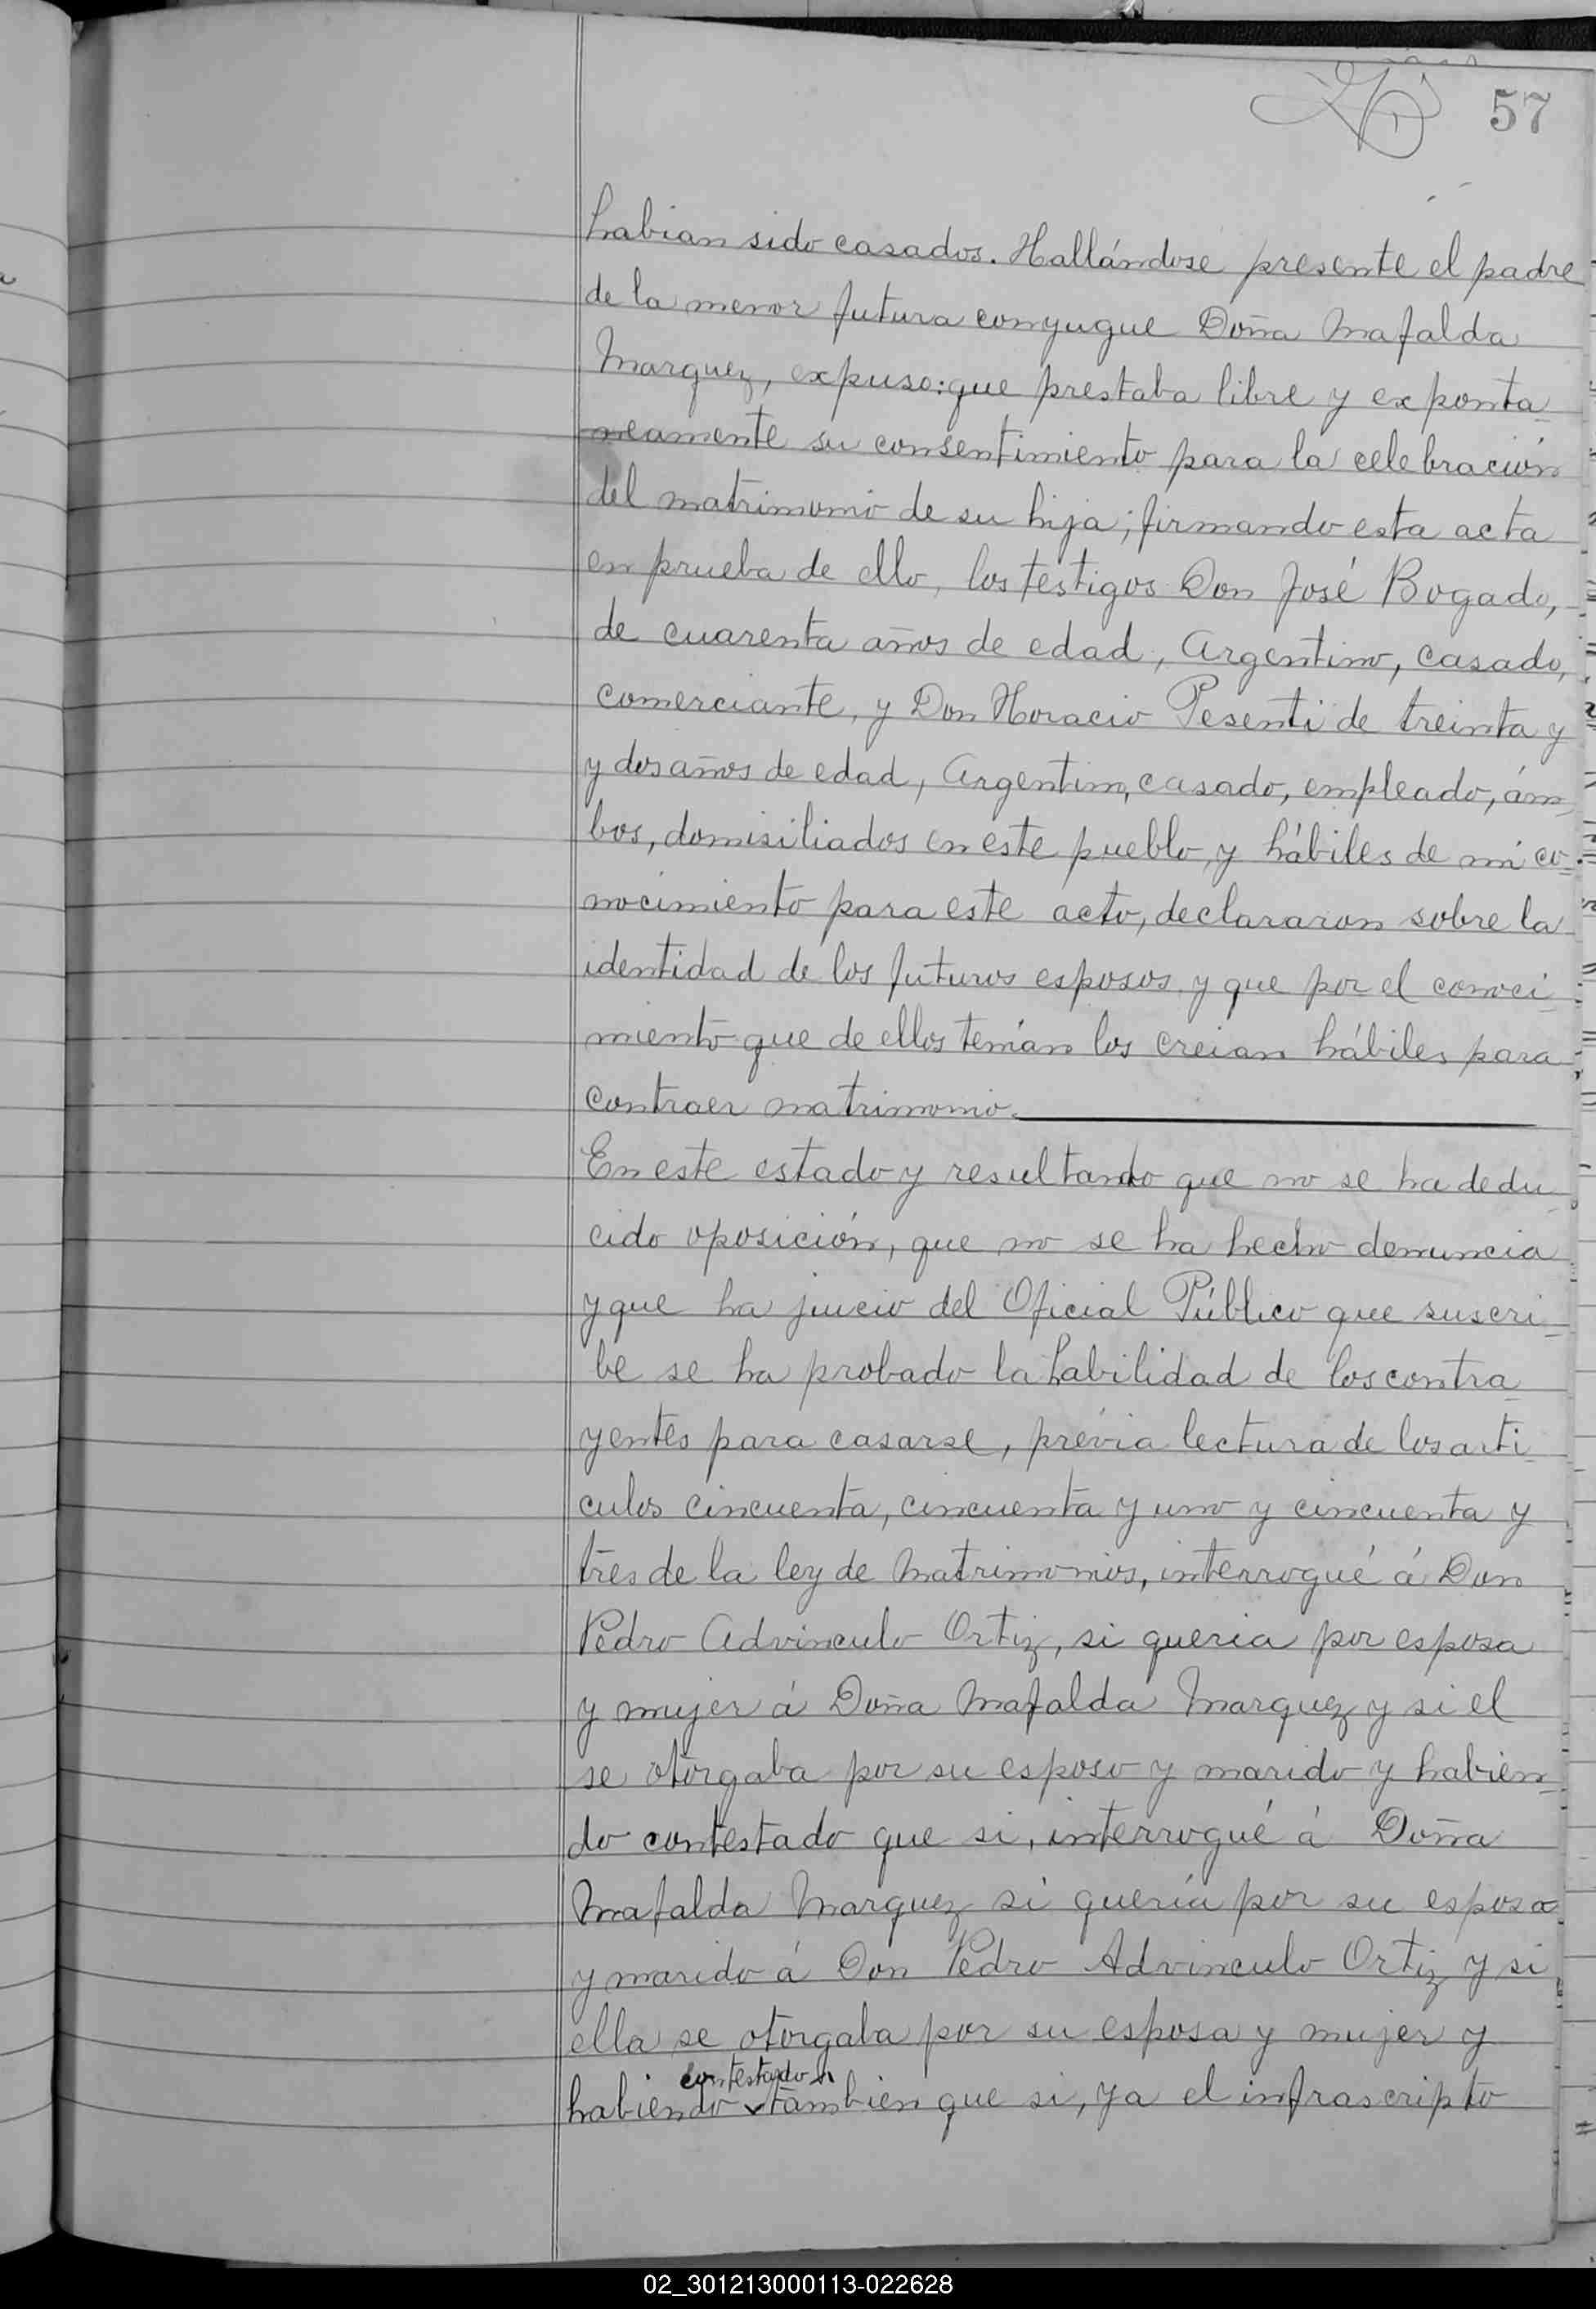 57
habian sido casados. Hallándose presente el padre
de la menor futura conyugue Doña Mafalda
Marquez, expuso: que prestaba libre y exponta-
neamente su consentimiento para la celebración
del matrimonio de su hija; firmando esta acta
en prueba de ello, los testigos Don José Bogado,
de cuarenta años de edad, Argentino, casado,
comerciante, y Don Horacio Pesenti de treinta y
y dos años de edad, Argentino, casado, empleado, ám-
bos, domisiliados en este pueblo, y hábiles de mi co-
nocimiento para este acto, declararon sobre la
identidad de los futuros esposos y que por el conoci-
miento que de ellos tenían los creian hábiles para
contraer matrimonio.
En este estado y resultando que no se ha dedu-
cido oposición, que no se ha hecho denuncia
y que ha juicio del Oficial Público que suscri-
be se ha probado la habilidad de los contra-
yentes para casarse, prévia lectura de los arti-
culos cincuenta, cincuenta y uno y cincuenta y
tres de la ley de Matrimonios, interrogué á Don
Pedro Advinculo Ortiz, si queria por esposa
y mujer á Doña Mafalda Marquez y si el
se otorgaba por su esposo y marido y habien-
do contestado que si, interrogué á Doña
Mafalda Marquez si quería por su esposo
y marido á Don Pedro Advinculo Ortiz y si
ella se otorgaba por su esposa y mujer y
contestado
habiendo tambien que si, ya el infrascripto
02_301213000113-022628